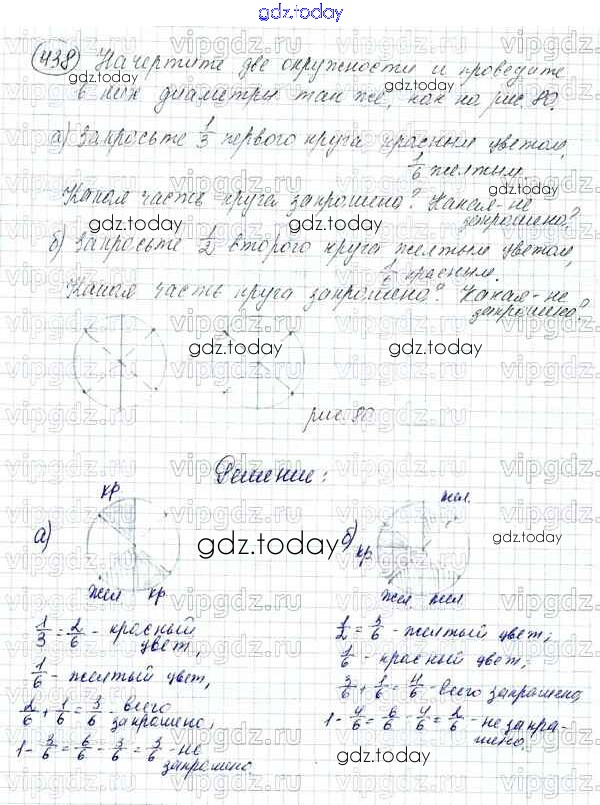 gdz.today
438 Начертите две окружности и проведите
в них диаметры так же, как на рис. 80.
а) Закрасьте 1/3 первого круга красным цветом,
1/6 желтым.
Какая часть круга закрашена? Какая - не
закрашена?
б) Закрасьте 1/2 второго круга желтым цветом,
1/6 красным.
Какая часть круга закрашена? Какая - не
закрашена?
gdz.today gdz.today
рис. 80
Решение:
а) кр
жел кр
б) жел
кр
жел жел
gdz.today
1/3 = 2/6 - красный
цвет,
1/6 - желтый цвет,
2/6 + 1/6 = 3/6 - всего
закрашено,
1 - 3/6 = 6/6 - 3/6 = 3/6 - не
закрашено.
1/2 = 3/6 - желтый цвет;
1/6 - красный цвет;
3/6 + 1/6 = 4/6 - всего закрашено
1 - 4/6 = 6/6 - 4/6 = 2/6 - не закра-
шено.
gdz.today